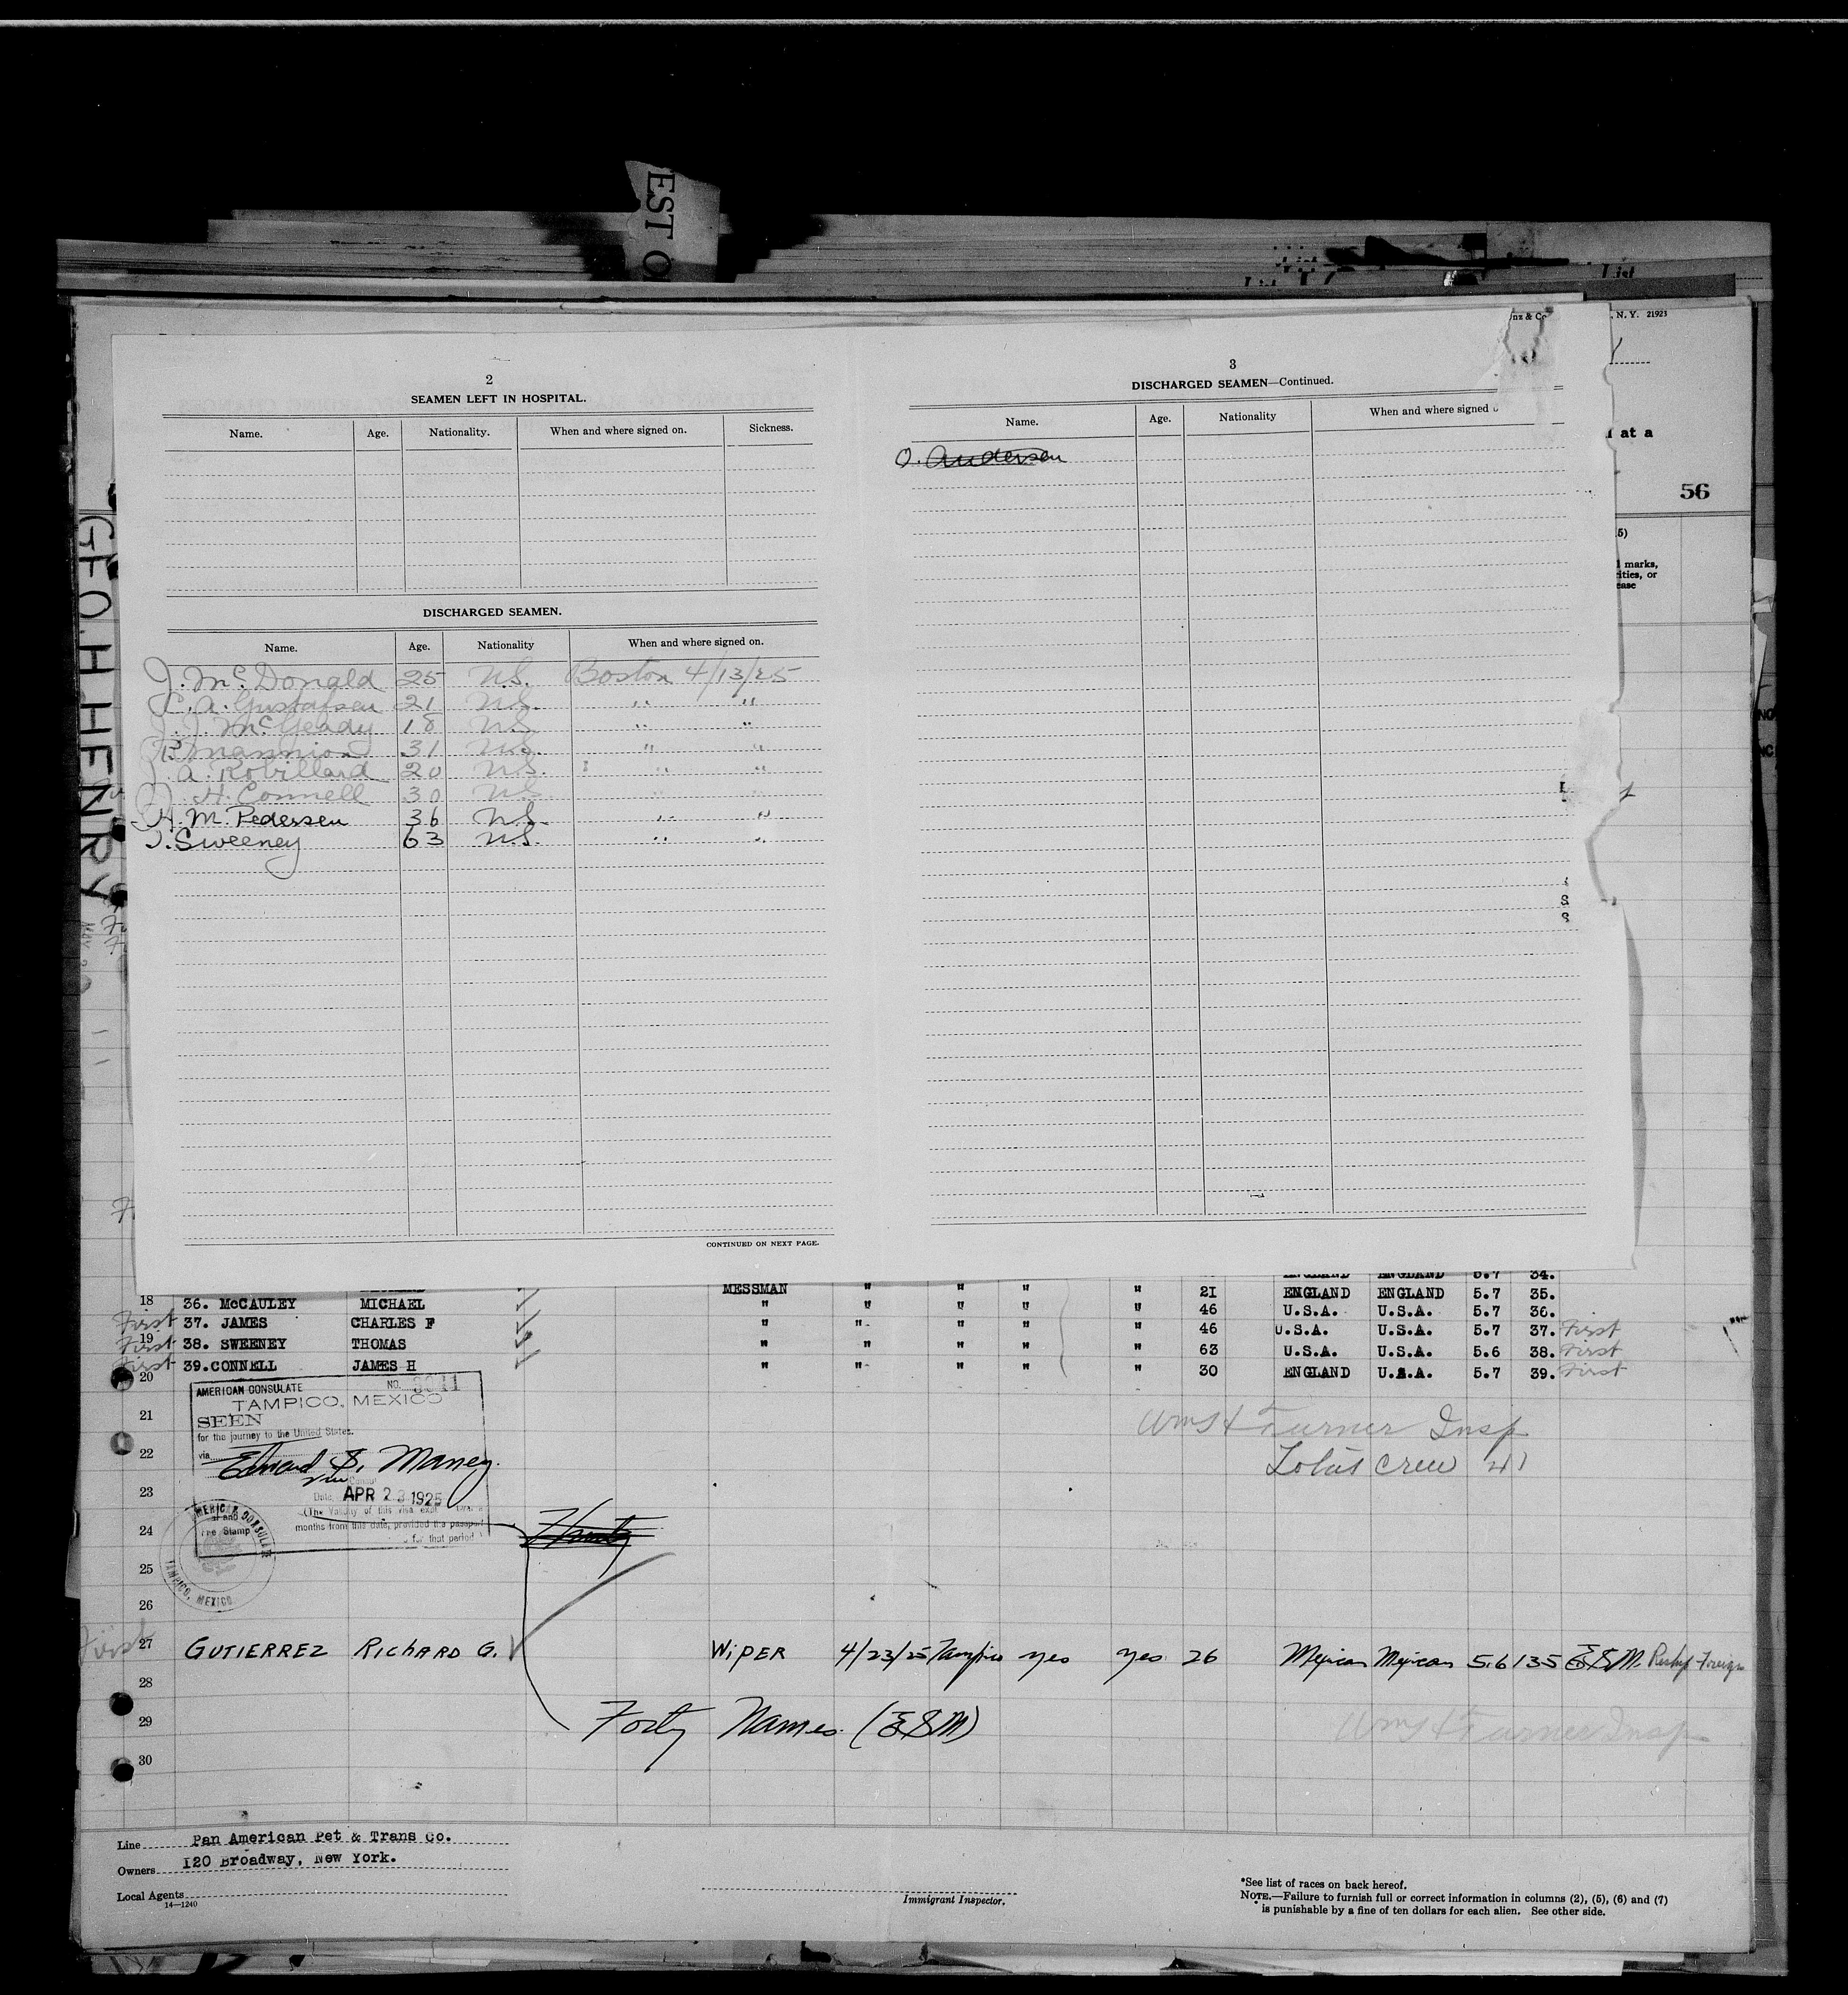 EST O
List
List
List
nz & Co
, N. Y. 21923
at a
56
5)
marks,
ities, or
ease
GEO. H HENRY
2
SEAMEN LEFT IN HOSPITAL.
Name. Age. Nationality. When and where signed on. Sickness.
DISCHARGED SEAMEN.
Name. Age. Nationality When and where signed on.
J. McDonald 25 U.S. Boston 4/13/25
C. A. Gustafsen 21 U.S. " "
J. J. McGeady 18 U.S. " "
P. Mannion 31 U.S. " "
J. A. Robillard 20 U.S. " "
J. H. Connell 30 U.S. " "
H. M. Pedersen 36 U.S. " "
T. Sweeney 63 U.S. " "
CONTINUED ON NEXT PAGE.
3
DISCHARGED SEAMEN—Continued.
Name. Age. Nationality When and where signed
O. Andersen
ENGLAND ENGLAND 5.7 34.
MESSMAN " " " " 21 ENGLAND ENGLAND 5.7 35.
18 36. McCAULEY MICHAEL " " " " " 46 U.S.A. U.S.A. 5.7 36.
First 37. JAMES CHARLES F " " " " " 46 U.S.A. U.S.A. 5.7 37. First
First 19 38. SWEENEY THOMAS " " " " " 63 U.S.A. U.S.A. 5.6 38. First
First 39. CONNELL JAMES H " " " " " 30 ENGLAND U.S.A. 5.7 39. First
20
AMERICAN CONSULATE NO. 3041
TAMPICO, MEXICO
SEEN
for the journey to the United States.
via
Edward S. Maney
Date, APR 23 1925
(The validity of this visa
months from this date, provided the passport
for that period
AMERICAN CONSULATE
Fee Stamp
TAMPICO, MEXICO
21
22
23
24
25
26
Wm H Turner Insp
Total crew 41
First 27 GUTIERREZ RICHARD G. WIPER 4/23/25 Tampico yes yes 26 Mexican Mexican 5.6 135 ESM. Reship Foreign
28
29 Forty Names (ESM)
Wm H Turner Insp
30
Line Pan American Pet & Trans Co.
Owners 120 Broadway, New York.
Local Agents
14—1240
Immigrant Inspector.
*See list of races on back hereof.
NOTE.—Failure to furnish full or correct information in columns (2), (5), (6) and (7)
is punishable by a fine of ten dollars for each alien. See other side.